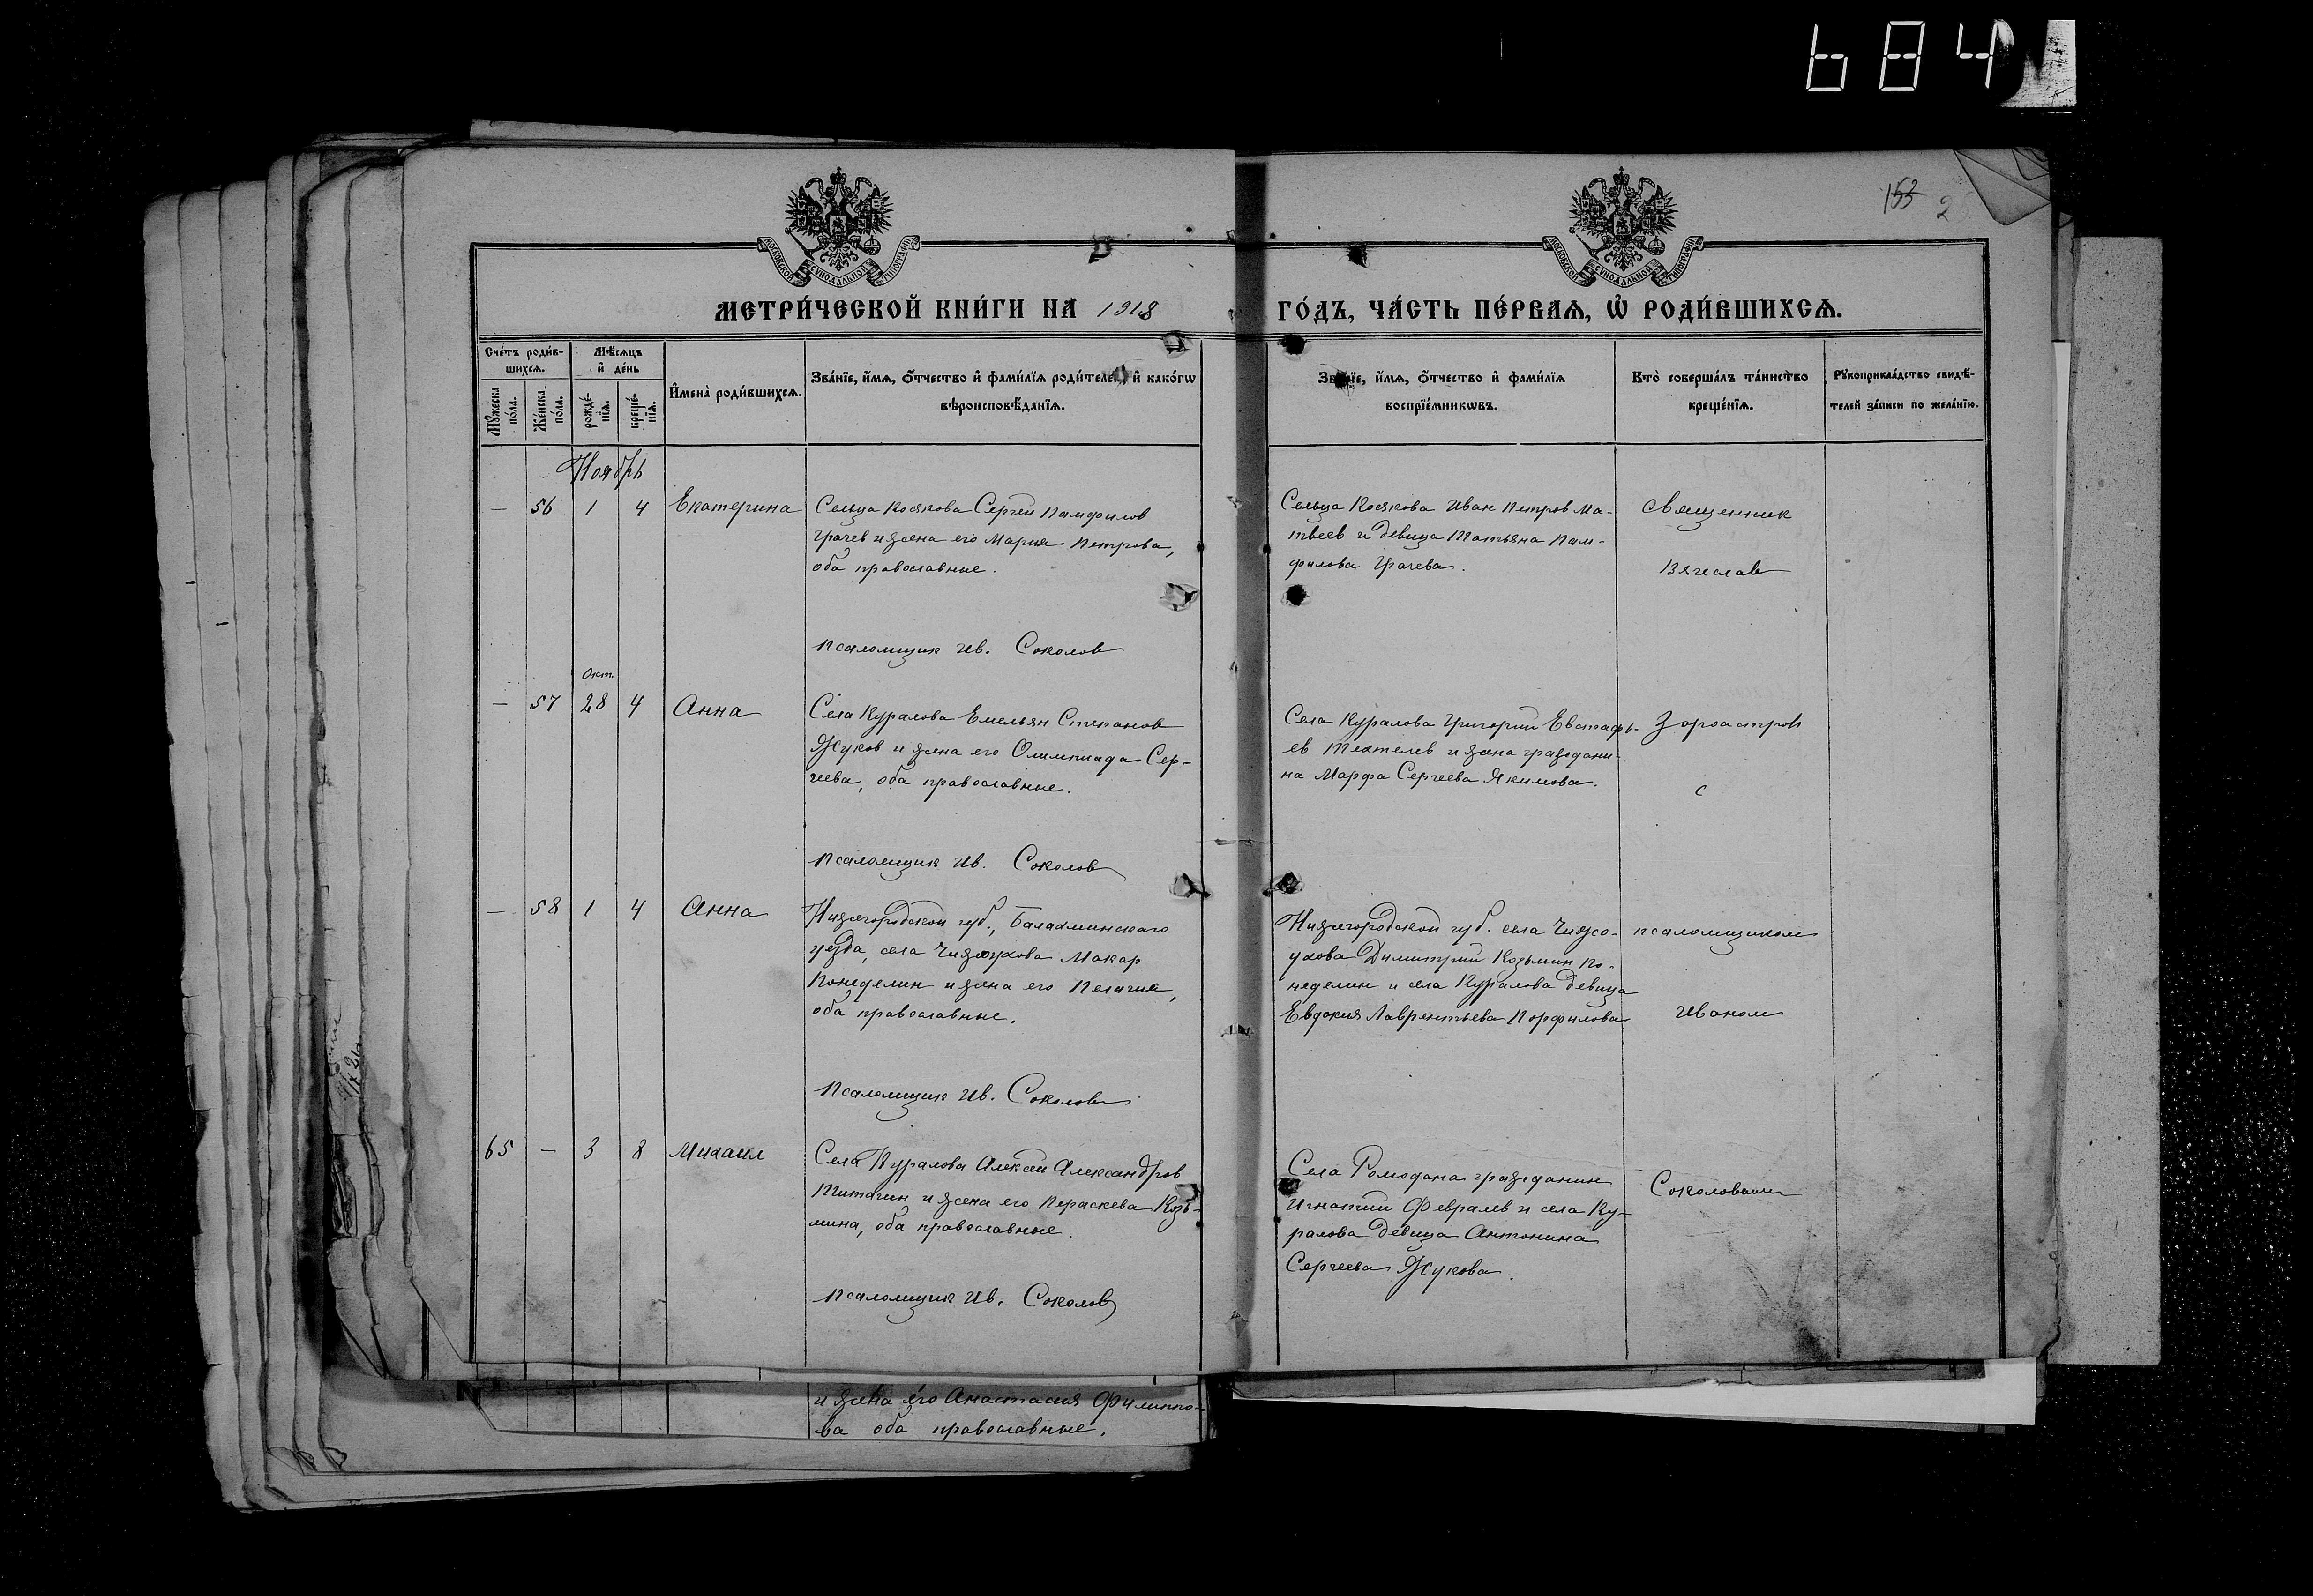 684
153 2
МОСКОВСКОЙ СѴНОДАЛЬНОЙ ТИПОГРАФІИ
МОСКОВСКОЙ СѴНОДАЛЬНОЙ ТИПОГРАФІИ
МЕТРИ́ЧЕСКОЙ КНИ́ГИ НА 1918 ГО́ДЪ, ЧА́СТЬ ПЕ́РВАѦ, Ѡ҆ РОДИ́ВШИХСѦ.
Сче́тъ роди́в-
шихсѧ.
Мꙋ́жеска по́ла.
Же́нска по́ла.
Мѣ́сѧцъ
и҆ де́нь
рожде́-
нїѧ.
креще́-
нїѧ.
И҆мена̀ роди́вшихсѧ.
Зва́нїе, и҆́мѧ, ѻ҆́тчество и҆ фами́лїѧ роди́телей, и҆ како́гѡ
вѣроисповѣ́данїѧ.
Зва́нїе, и҆́мѧ, ѻ҆́тчество и҆ фами́лїѧ
воспрїе́мникѡвъ.
Кто̀ соверша́лъ та́инство
креще́нїѧ.
Рꙋкоприкла́дство свидѣ́-
телей за́писи по жела́нїю.
Ноябрь
— 56 1 4 Екатерина
Сельца Косякова Сергей Памфилов
Грачев и жена его Мария Петрова,
оба православные.
Псаломщик Ив. Соколов
Сельца Косякова Иван Петров Ма-
твеев и девица Татьяна Пам-
филова Грачева.
Священник
Вячеслав
Окт.
— 57 28 4 Анна
Села Куралова Емельян Степанов
Жуков и жена его Олимпиада Сер-
геева, оба православные.
Псаломщик Ив. Соколов
Села Куралова Григорий Евстафь-
ев Тектелев и жена граждани-
на Марфа Сергеева Якимова.
Зороастров
с
— 58 1 4 Анна
Нижегородской губ., Балахминскаго
уезда, села Чижухова Макар
Понеделин и жена его Пелагия,
оба православные.
Псаломщик Ив. Соколов
Нижегородской губ. села Чижо-
ухова Димитрий Козьмин По-
неделин и села Куралова девица
Евдокия Лаврентьева Порфилова
псаломщиком
Иваном
65 — 3 8 Михаил
Села Куралова Алексей Александров
Титагин и жена его Параскева Козь-
мина, оба православные.
Псаломщик Ив. Соколов
Села Ромодана гражданин
Игнатий Февралев и села Ку-
ралова девица Антонина
Сергеева Жукова.
Соколовым
и жена его Анастасия Филиппо-
ва оба православные.